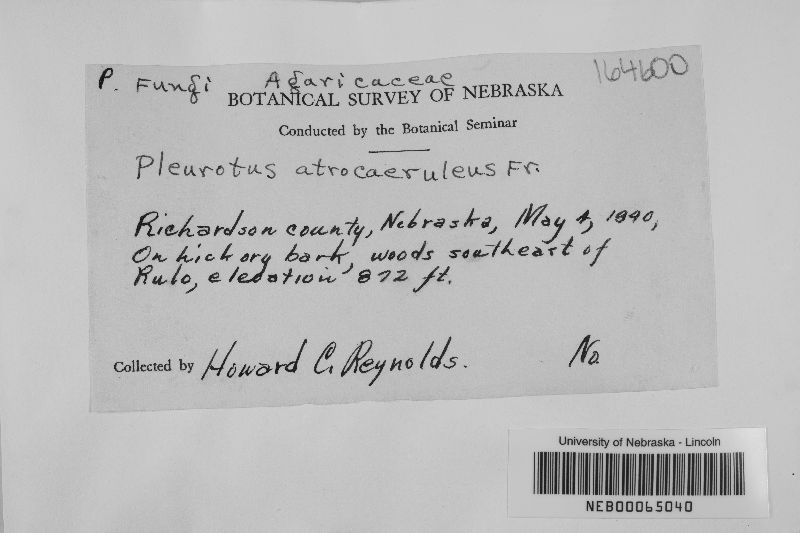 P. Fungi Agaricaceae 164600
BOTANICAL SURVEY OF NEBRASKA
Conducted by the Botanical Seminar
Pleurotus atrocaeruleus Fr.
Richardson county, Nebraska, May 4, 1940,
On hickory bark, woods southeast of
Rulo, elevation 872 ft.
Collected by Howard C. Reynolds. No.
University of Nebraska - Lincoln
NEB00065040